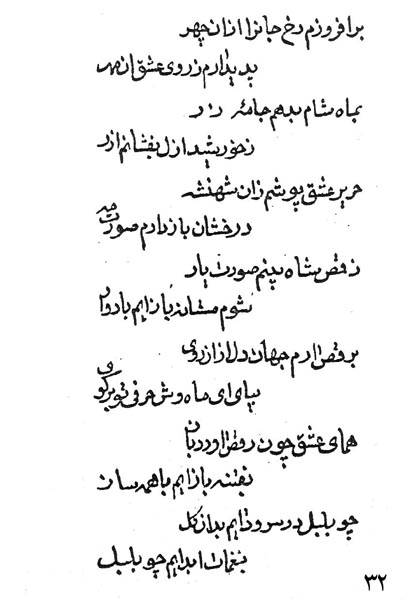 برافروزم رخ جانرا ازان چهر
پدیدارم ز روی عشق ان مهر
بماه شام بدهم جامهٔ
ز خورشید ازل بفشانم ازر
حریر عشق پوشم زان شهنشه
درخشان بازدارم صورت مه
ز رقص شاه بینم صورت یار
شوم مستانه بازایم
برقص ارم جهان دل از ان روی
بیا ای ماه وش حرفی تو برگو
همای عشق چون رقص اورد
بفتنه بازایم با همه ساز
چو بلبل در سرود ایم بدان گل
بنغمات اندرایم چو بلبل
۳۲